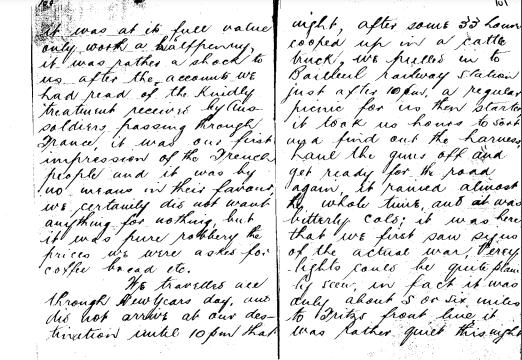 it was at its full value
only worth a halfpenny,
it was rather a shock to
us after the accounts we
had read of the kindly
treatment received by
soldiers passing through
France, it was our first
impression of the French
people and it was by
no means in their favour,
we certainly did not want
anything for nothing, but
it was pure robbery the
prices we were asked for
coffee bread etc.
We travelled all
through New Years day, and
did not arrive at our des-
tination until 10 pm that
101
night, after some 33 hours
cooped up in a cattle
truck, we pulled in to
Bailleul railway station
just after 10 pm, a regular
picnic for us then started
it took us hours to sort
and find out the harness,
haul the guns off and
get ready for the road
again, it rained almost
the whole time, and it was
bitterly cold; it was here
that we first saw signs
of the actual war, Verey
lights could be quite plain
ly seen, in fact it was
only about 5 or six miles
to Fritz's front line, it
was rather quiet this night